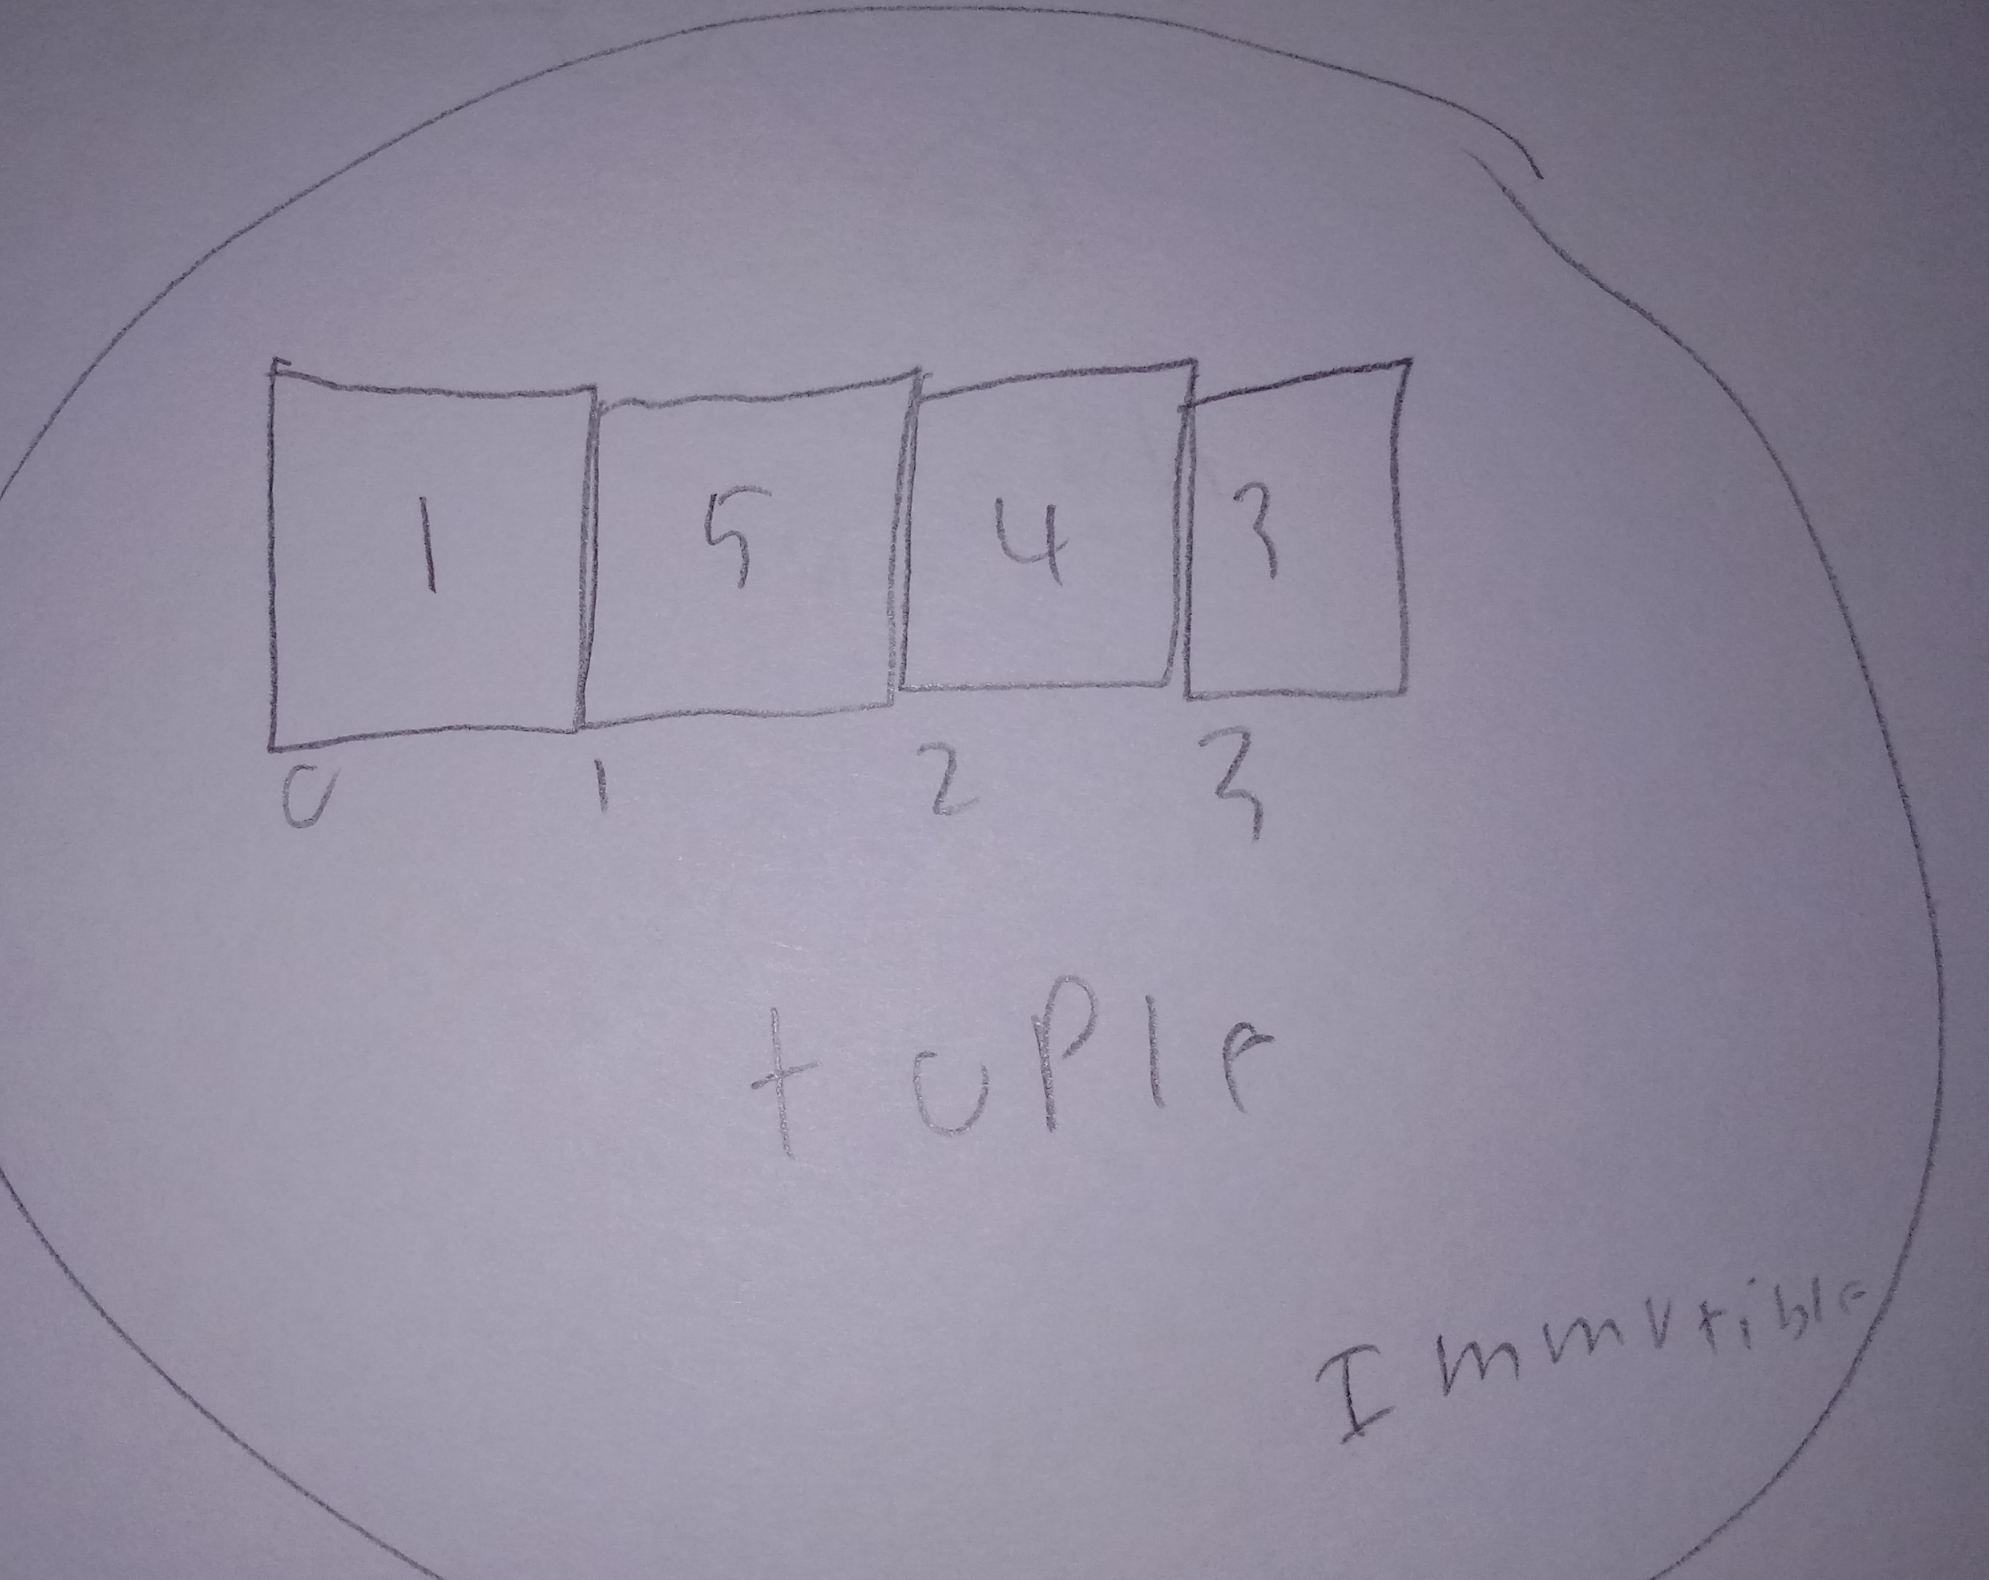 1 5 4 3
0 1 2 3
tuple
Immutible